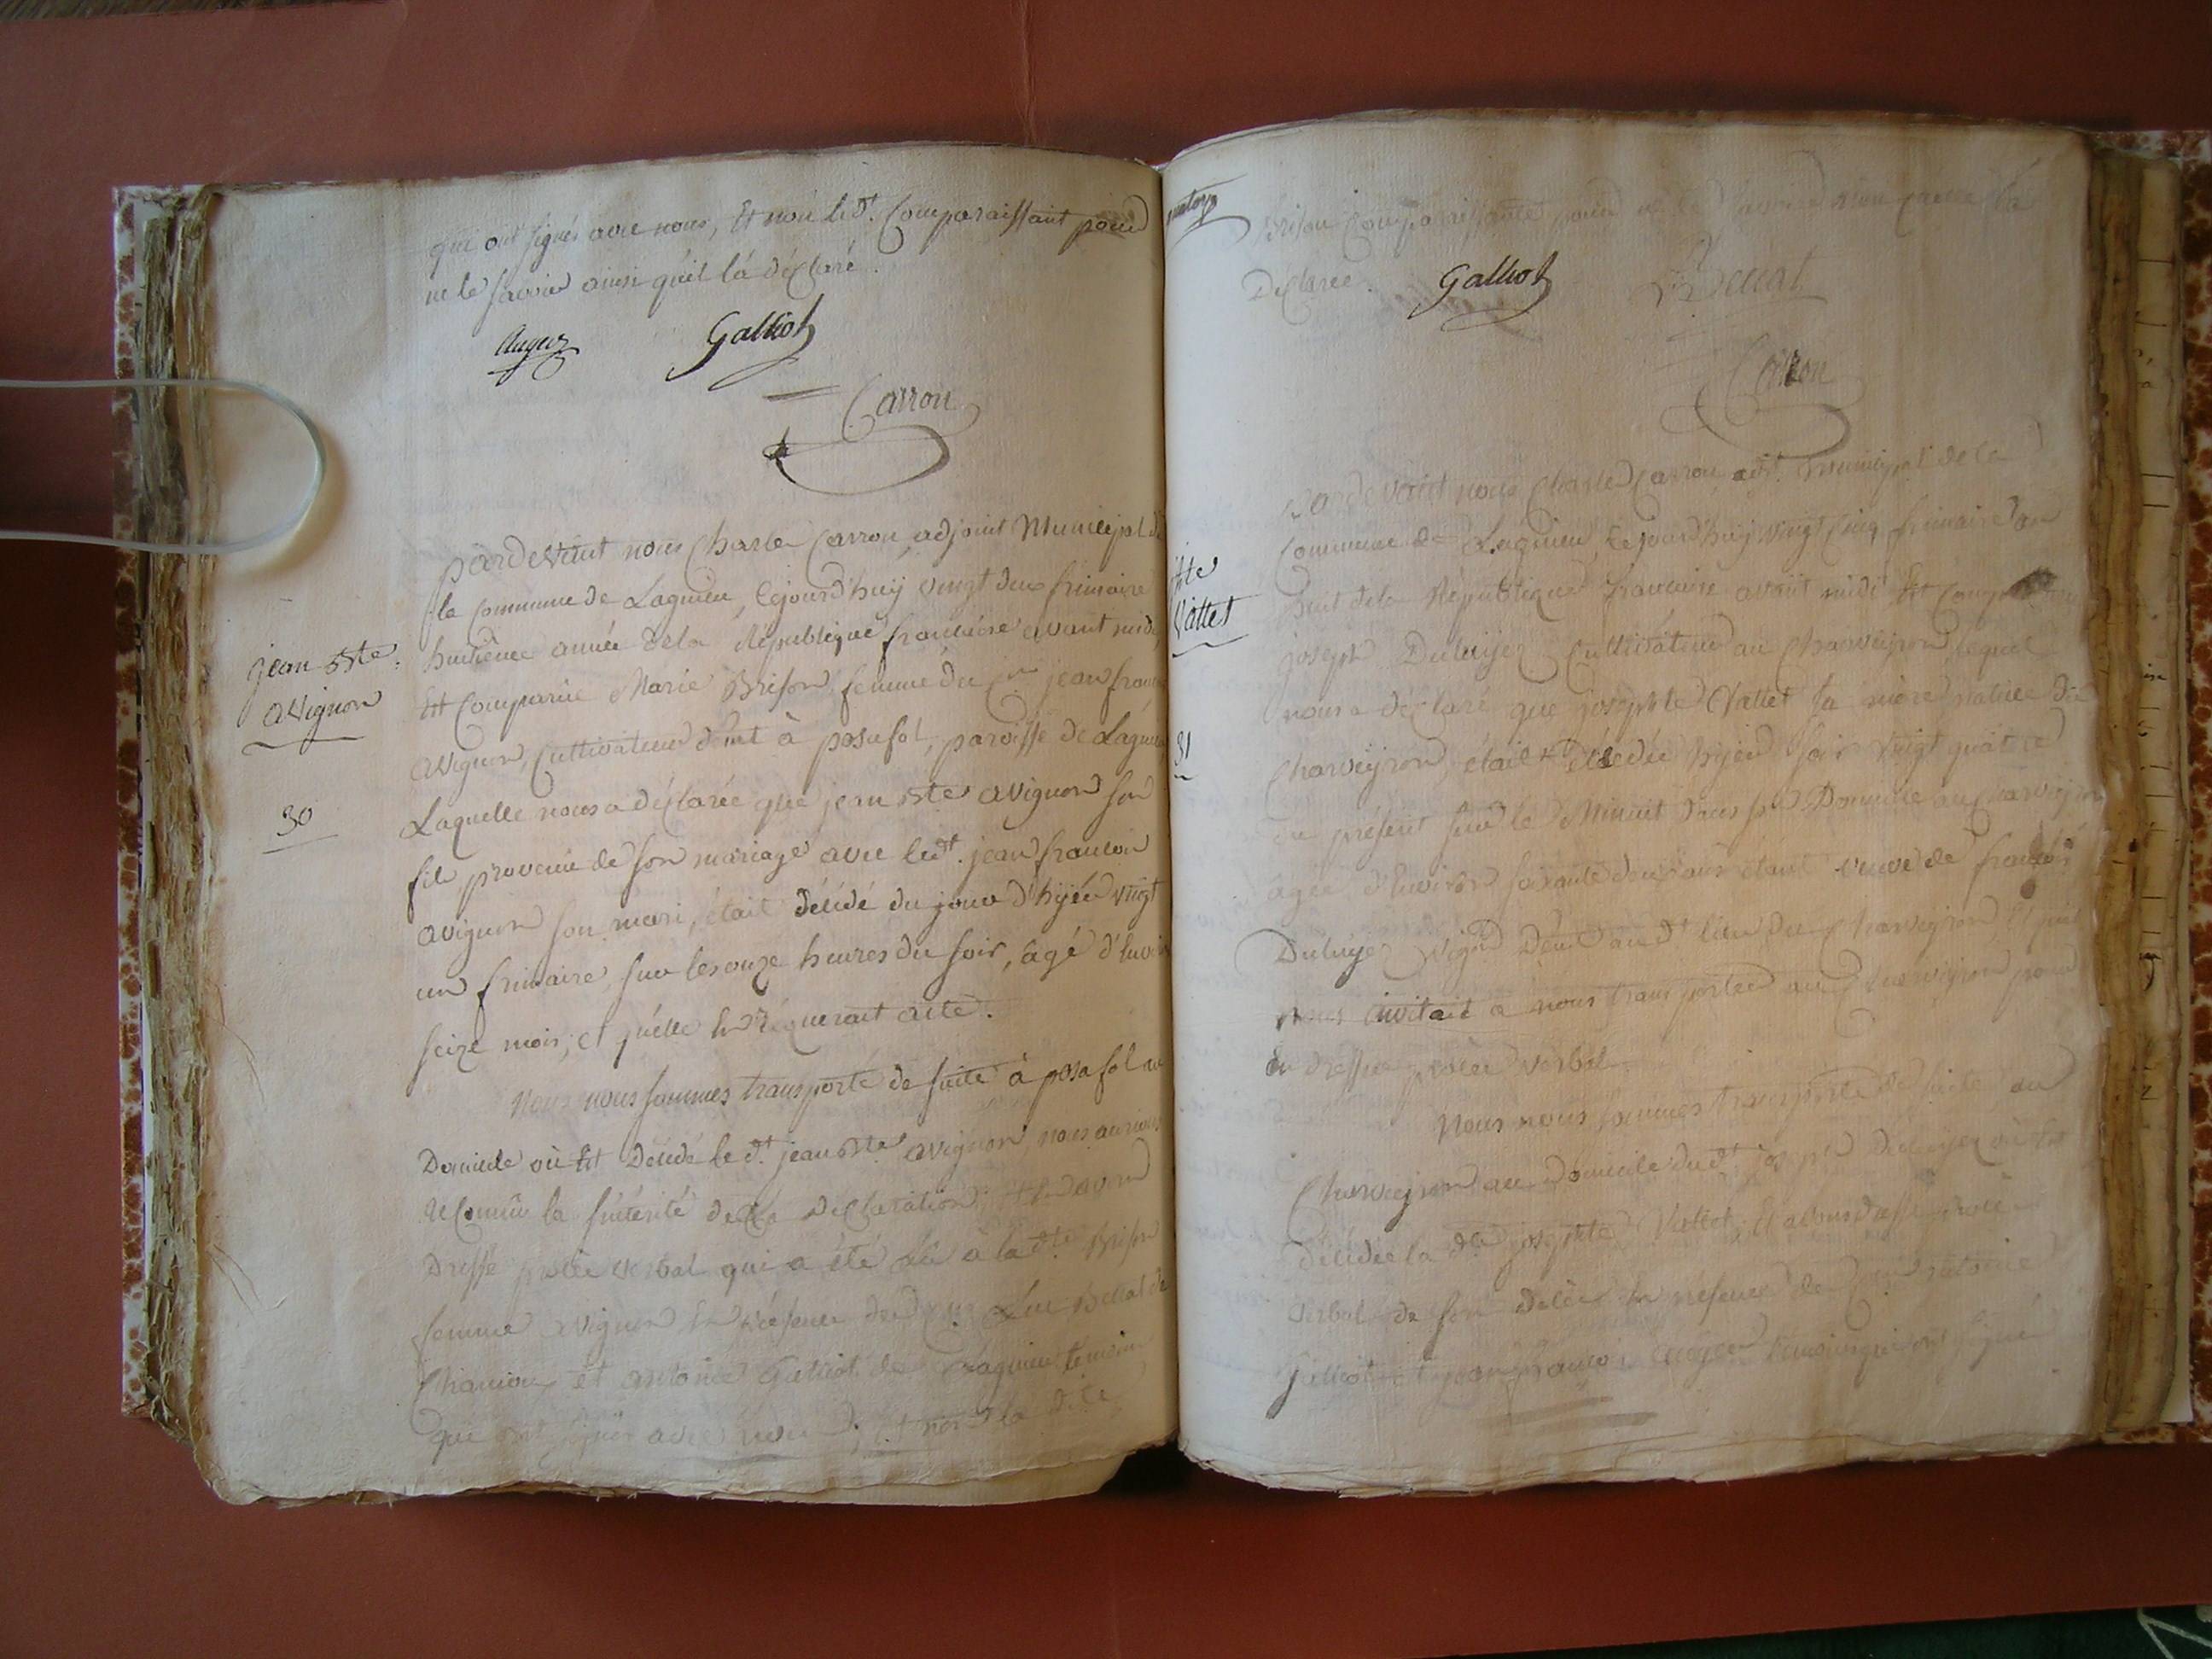 qui ont signés avec nous, Et non led.t Comparaissant pour
ne le savoir ainsi qu'eil l'a déclaré.
Auger Galliot
Carron
pardevant nous Charle Carron, adjoint Municipal de
la Commune de Lagnieu, Cejourd'huÿ vingt deux frimaire
jean Bte.
huitième année dela République francaise avant midi,
avignon
Est Comparüe Marie Brison femme du Cen jean francois
avignon, Cultivateur demt à posafol, paroisse de Lagnieu
30
Laquelle nous a déclarée que jean Bte avignon son
fils, provenu de son mariage avec led.t jean francois
avignon son mari, était décédé du jour d'hÿer vingt
un frimaire, sur les onze heures du soir, agé d'Environ
seize mois, et qu'elle En réquerait acte.
Nous nous sommes transporté de suite à posafol au
Domicile où Est Décédé le d.t jean Bte avignon nous aurions
reConnû la sincérité de la Déclaration, et En avons
Dressé procès verbal qui a été lû à lad.te Brison
femme avignon En présence des Cens Luc Bellat de
et antoine Galliot de Lagnieu témoins
qui ont signés avec nous, Et non la dite
Brison Comparaissante pour ne le savoir ainsi qu'elle l'a
Déclarée. Galliot Bellat
Carron
Pardevant nous Charle Carron adjt. Municipal de la
Commune de Lagnieu, Cejourd'huÿ vingt Cinq frimaire an
huit dela République francaise avant midi Est Comparu
Vallet
joseph Cultivateur au Charveÿron, lequel
nous a déclaré que josephte Vallet sa mère native de
31
Charveÿron, était décédée hÿer soir vingt quatre
du présent sur le Minuit dans son Domicile au Charveyron
agée d'Environ soixante deux ans étant veuve de francois
vignn demt au d.t lieu du Charveyron Et qu'il
nous invitait à nous transporter au Charveÿron pour
En dresser procès verbal.
Nous nous sommes transporté de suite au
Charveyron au Domicile dud.t joseph où Est
décédée la d.te josephte Vallet, Et avons dressé procès
verbal de son décès En présence des Cens antoine
Galliot et jean francois auger témoins qui ont signé